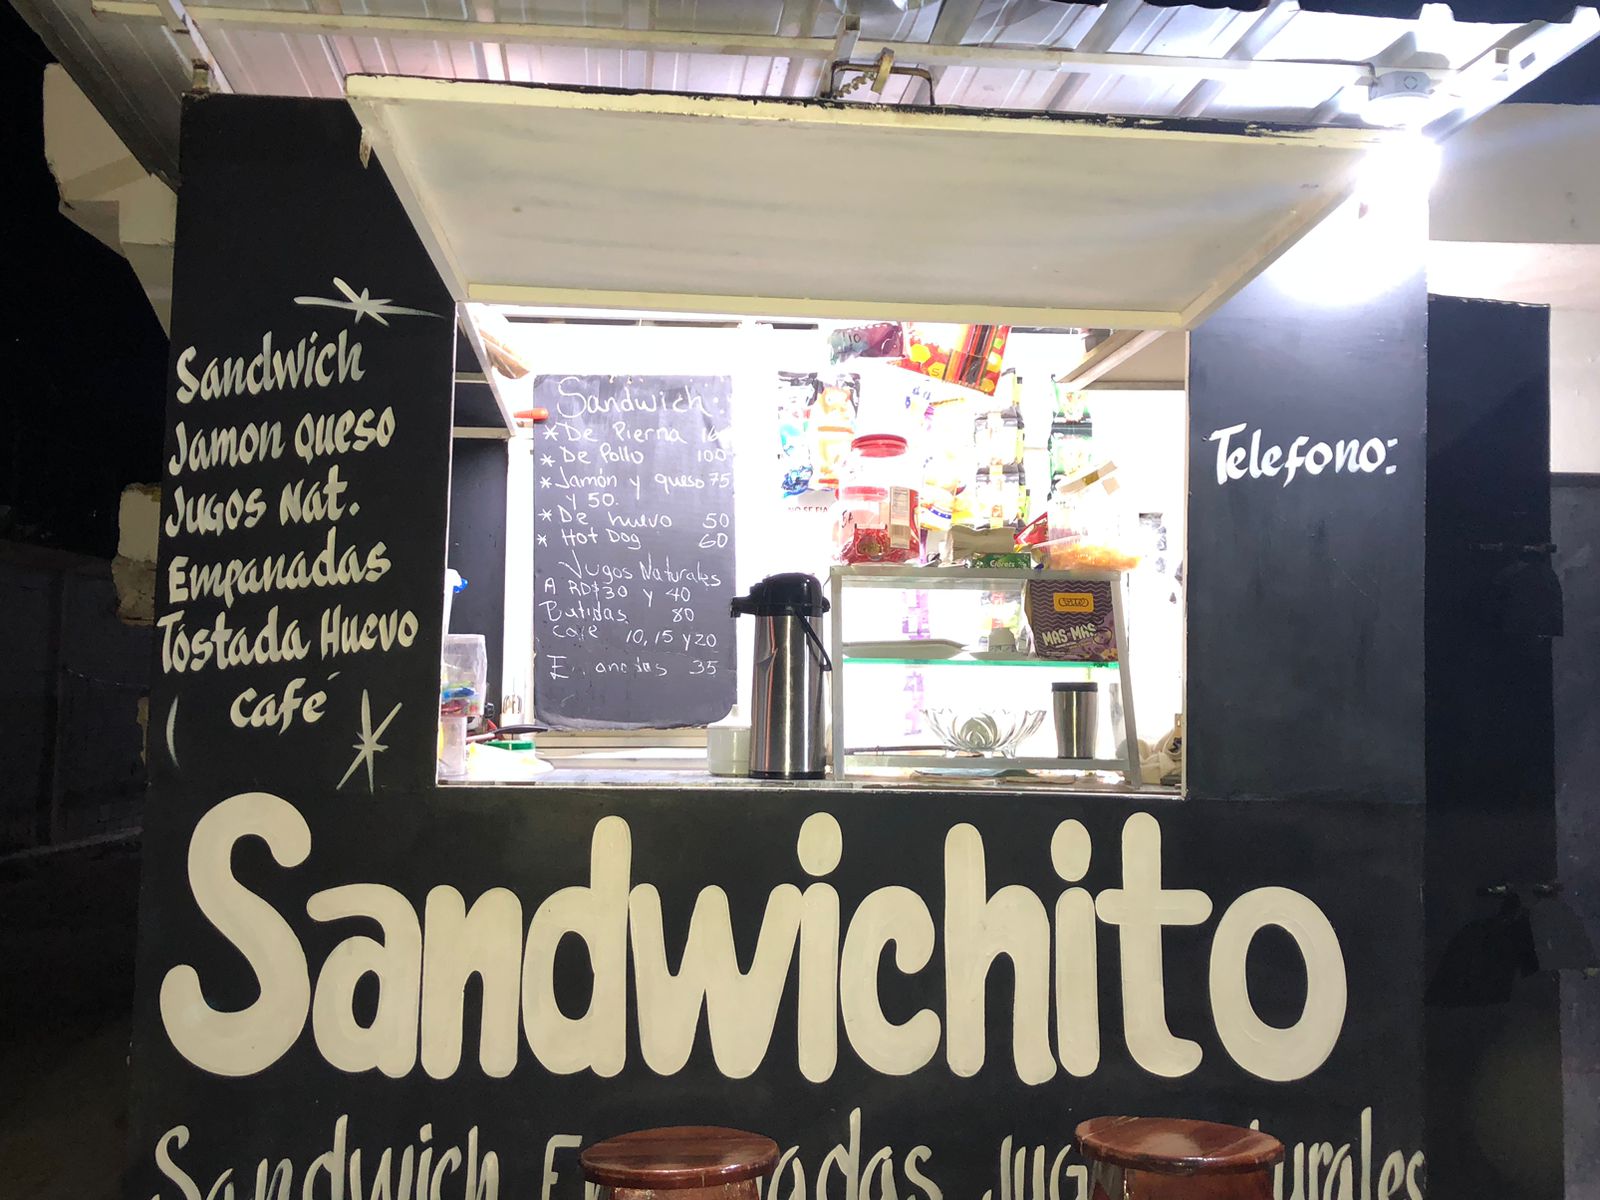 Sandwich
Jamon Queso
Jugos Nat.
Empanadas
Tostada Huevo
Café
Sandwich:
* De Pierna
* De Pollo 100
* Jamón y queso 75
y 50.
* De huevo 50
* Hot Dog 60
Jugos Naturales
A RD$30 y 40
Batidas 80
Café 10, 15 y 20
35
NO SE FIA
Clorets
MAS-MAS
Telefono:
Sandwichito
Sandwich